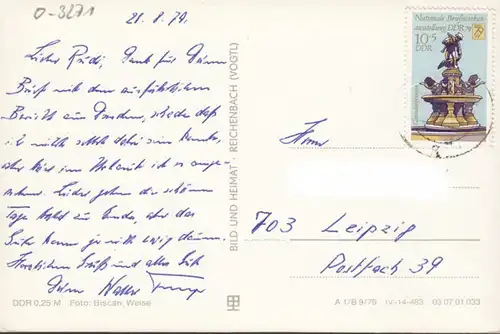 0-3271
21. 8. 79.
Lieber Rudi, Dank für Deinen
Brief mit dem ausführlichen
Bericht aus Dresden, schade daß
ich nicht selbst dabei sein konnte,
aber hier im Urlaub ist es ange-
nehm. Leider gehen die schönen
Tage bald zu Ende, aber das
Gute kann ja nicht ewig dauern.
Herzlichen Gruß und alles Gute
Dein Walter
DDR 0,25 M Foto: Biscan, Weise
BILD UND HEIMAT · REICHENBACH (VOGTL)
Nationale Briefmarken-
ausstellung DDR '79
10+5
DDR
Herrn
703 Leipzig
Postfach 39
A 1/B 9/79 IV-14-483 03 07 01 033